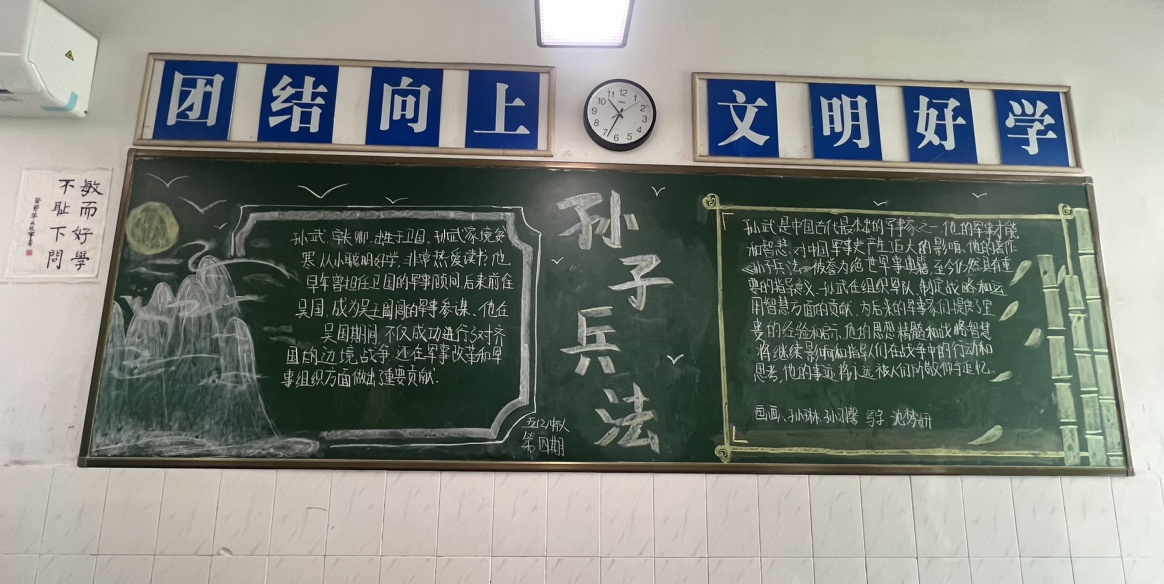 团结向上
文明好学
12
1
2
3
4
5
6
7
8
9
10
11
敏而好學
不恥下問
孙子兵法
孙武,字长卿,出生于卫国。孙武家境贫
寒,从小聪明好学,非常热爱读书,他
早年曾担任卫国的军事顾问,后来前在
吴国,成为吴王阖闾的军事参谋、他在
吴国期间,不仅成功进行了对齐
国的边境战争,还在军事改革和军
事组织方面做出了重要贡献.
五(2)中队
第四期
孙武是中国古代最杰出的军事家之一,他的军事才能
和智慧,对中国军事史产生巨大的影响,他的著作
《孙子兵法》被誉为绝世军事典籍,至今仍然具有重
要的指导意义.孙武在组织军队、制武战略和运
用智慧方面的贡献,为后来的军事家们提供了宝
贵的经验和启示,他的思想精髓和战略智慧
将继续影响和指导人们在战争中的行动和
思考,他的事迹将永远被人们所敬仰与追忆.
画画、孙琳、孙 馨 写字 沈梦妍